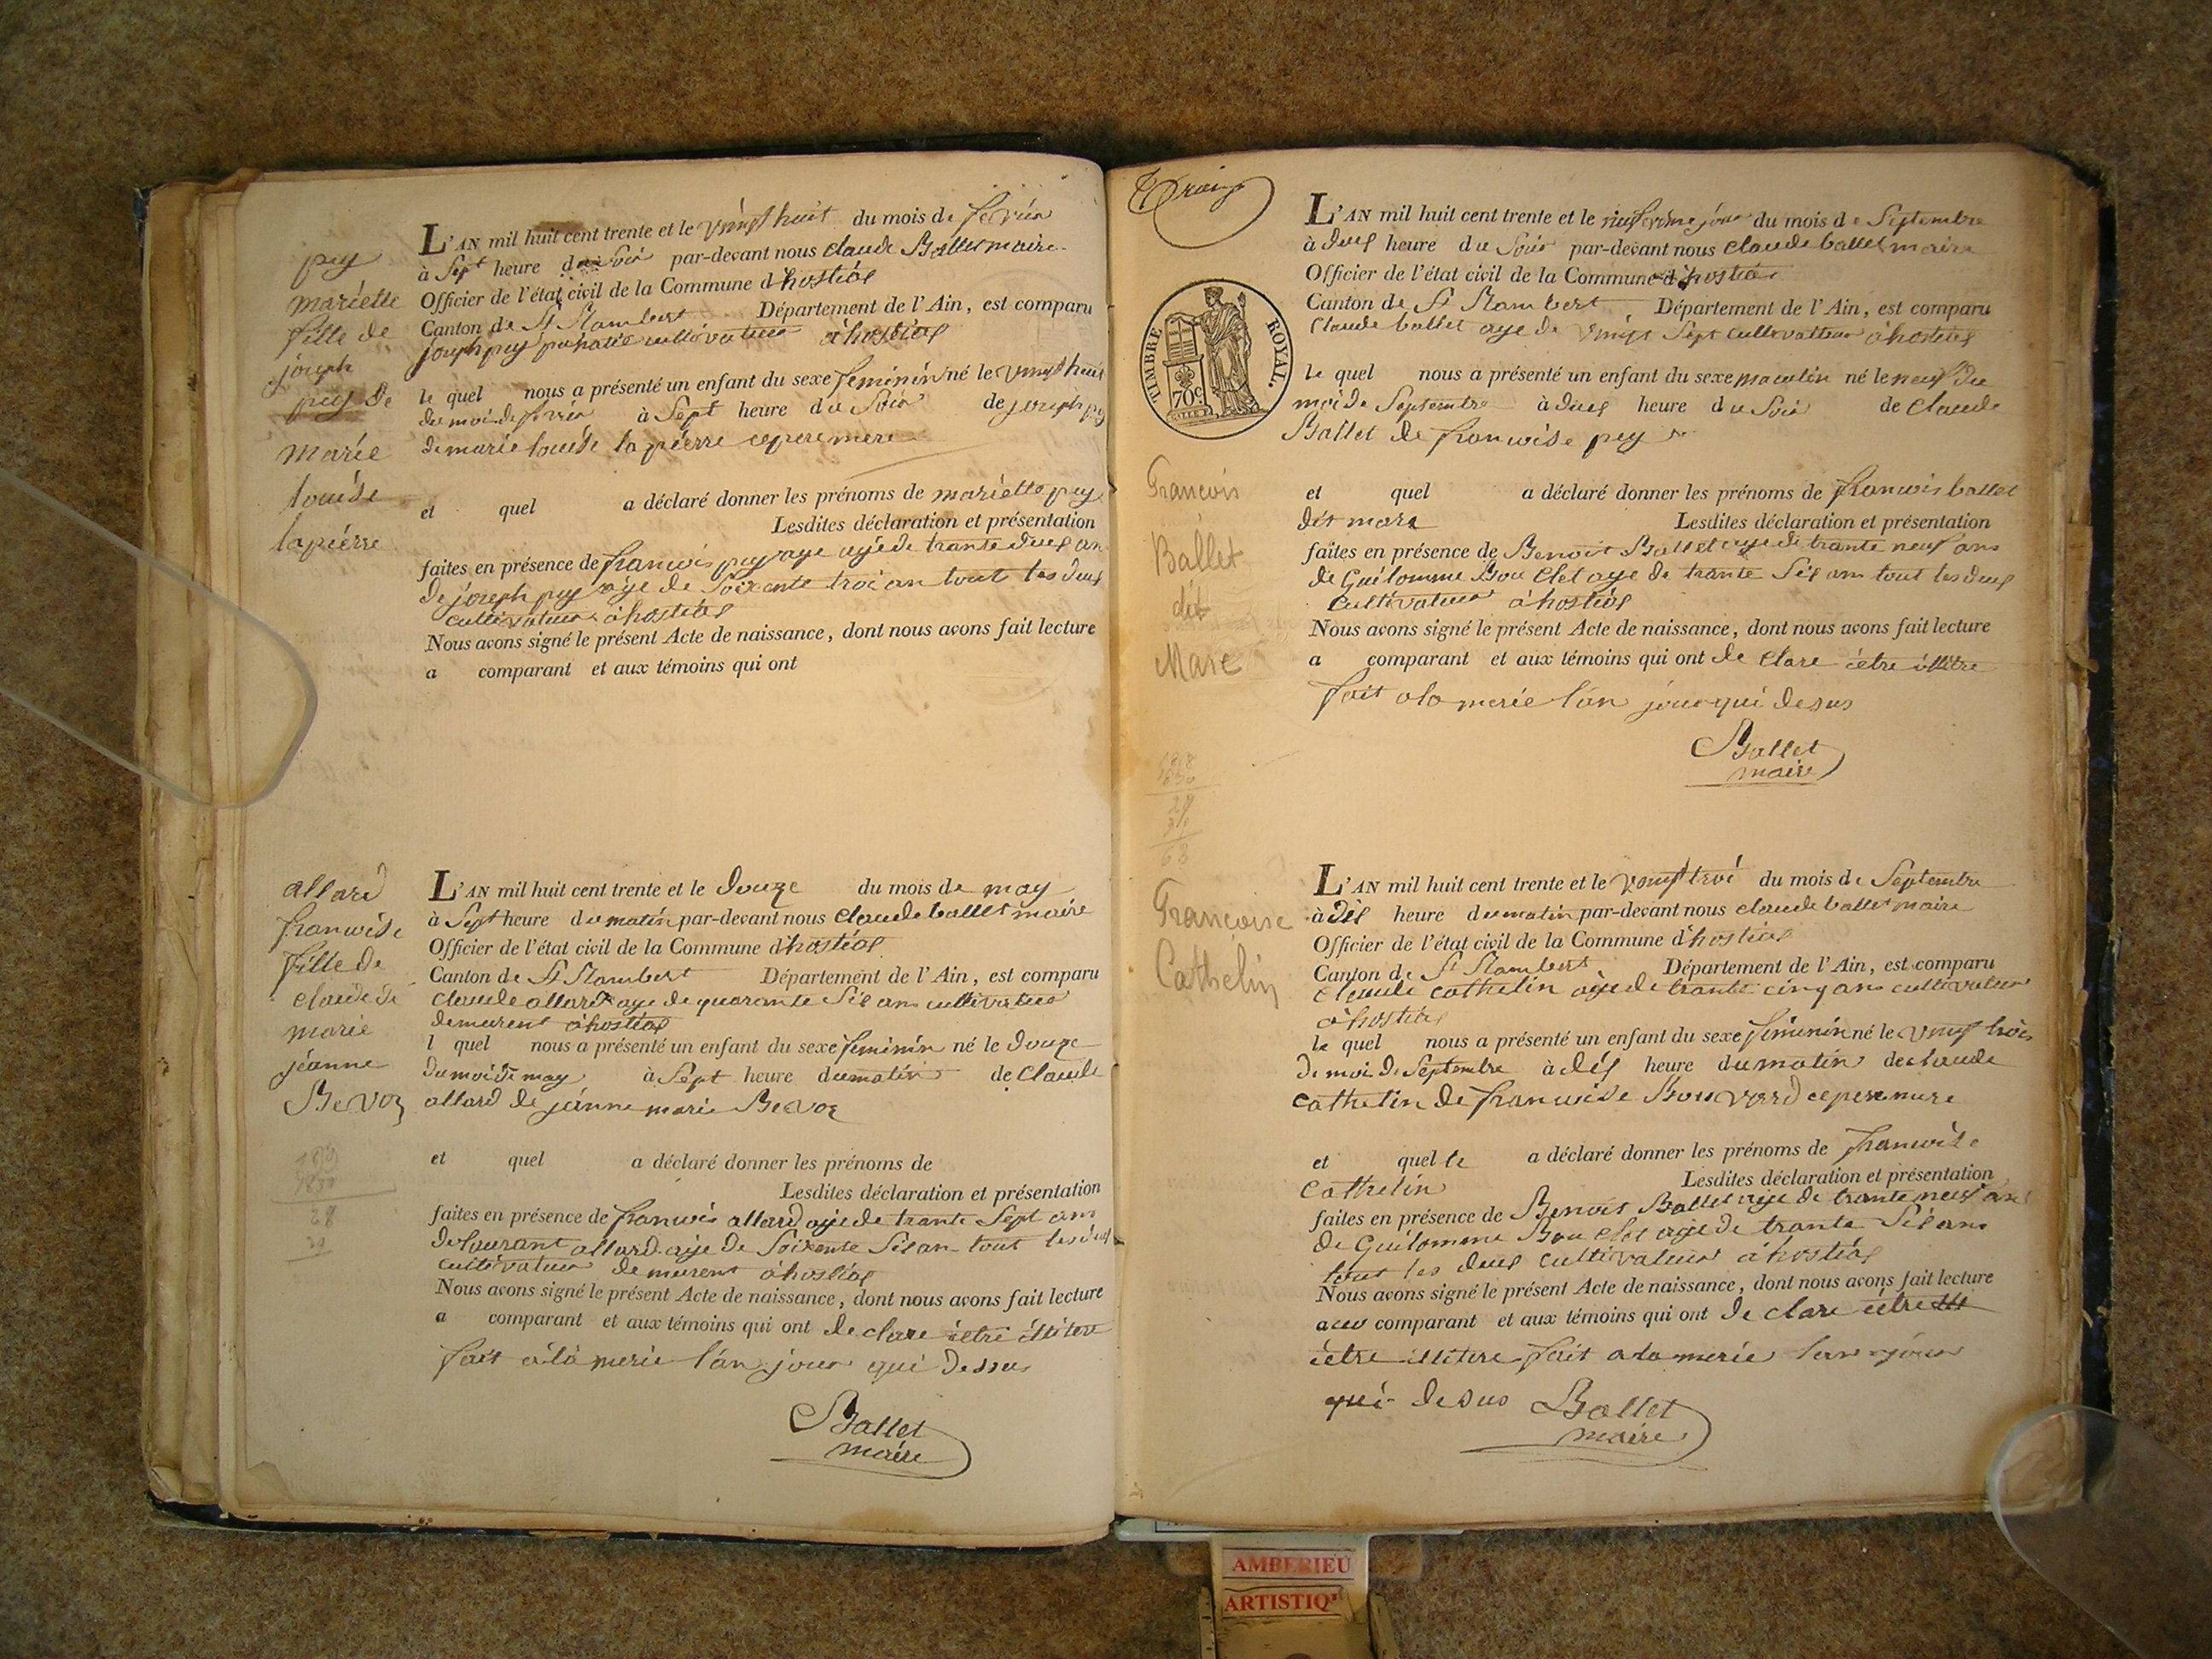 puy
mariette
fille de
joseph
puy de
marie
louise
lapierre
L'AN mil huit cent trente et le vingt huit du mois de fevrier
à Sept heure du Soir par-devant nous claude Ballet maire
Officier de l'état civil de la Commune d'hostias
Canton de St Rambert Département de l'Ain, est comparu
joseph puy cultivateur à hostias
le quel nous a présenté un enfant du sexe feminin né le vingt huit
du moi de fevrier à Sept heure du Soir de joseph puy
de marie louise la pierre ce pere mere
et quel a déclaré donner les prénoms de mariette puy
Lesdites déclaration et présentation
faites en présence de francois puy aye agé de trante deus an
de joseph puy age de Soixente troi an tout les deus
cultivateur à hostias
Nous avons signé le présent Acte de naissance, dont nous avons fait lecture
a comparant et aux témoins qui ont
allard
francoise
fille de
claude de
marie
jeanne
Bevoz
28
L'AN mil huit cent trente et le douze du mois de may
à Sept heure du matin par-devant nous claude ballet maire
Officier de l'état civil de la Commune d'hostias
Canton de St Rambert Département de l'Ain, est comparu
claude allard age de quarante Sis ans cultivateur
demurent à hostias
l quel nous a présenté un enfant du sexe feminin né le douze
du moi de may à Sept heure du matin de claude
allard de jeanne marie Bevoz
et quel a déclaré donner les prénoms de
Lesdites déclaration et présentation
faites en présence de francois allard age de trante Sept ans
de laurant allard age de Soixente Sis an tout les deus
cultivateur demurent à hostias
Nous avons signé le présent Acte de naissance, dont nous avons fait lecture
a comparant et aux témoins qui ont de clare être illitere
fait à la merie l'an jour qui dessus
Ballet
maire
TIMBRE ROYAL.
70c
Francois
Ballet
dit
Mare
L'AN mil huit cent trente et le neufvieme jour du mois de Septembre
à deus heure du Soir par-devant nous claude ballet maire
Officier de l'état civil de la Commune d'hostias
Canton de St Rambert Département de l'Ain, est comparu
Claude ballet age de vingt Sept cultivatteur à hostias
le quel nous a présenté un enfant du sexe maculin né le neuf du
moi de Septembre à deus heure du Soir de claude
Ballet de francoise puy
et quel a déclaré donner les prénoms de francois ballet
dit mare Lesdites déclaration et présentation
faites en présence de Benoit Ballet age de trante neuf ans
de Guilomme Bou Clet age de trante Sis ans tout les deus
cultivateur à hostias
Nous avons signé le présent Acte de naissance, dont nous avons fait lecture
a comparant et aux témoins qui ont de clare être illitre
fait a la merie l'an jour qui desus
Ballet
maire
68
Francoise
Cathelin
L'AN mil huit cent trente et le vingt troi du mois de Septembre
à dis heure du matin par-devant nous claude ballet maire
Officier de l'état civil de la Commune d'hostias
Canton de St Rambert Département de l'Ain, est comparu
claude cathelin age de trante cinq ans cultivateur
à hostias
le quel nous a présenté un enfant du sexe feminin né le vingt trois
de moi de Septembre à dis heure du matin de claude
cathelin de francoise Bouvard ce pere mere
et quel le a déclaré donner les prénoms de francoise
cathelin Lesdites déclaration et présentation
faites en présence de Benoit Ballet age de trante neuf ans
de Guilomme Bou Clet age de trante Sis ans
tout les deus cultivateur à hostias
Nous avons signé le présent Acte de naissance, dont nous avons fait lecture
aus comparant et aux témoins qui ont de clare être
être illitere fait a la merie l'an jour
qui desus Ballet
maire
AMBERIEU
ARTISTIQ